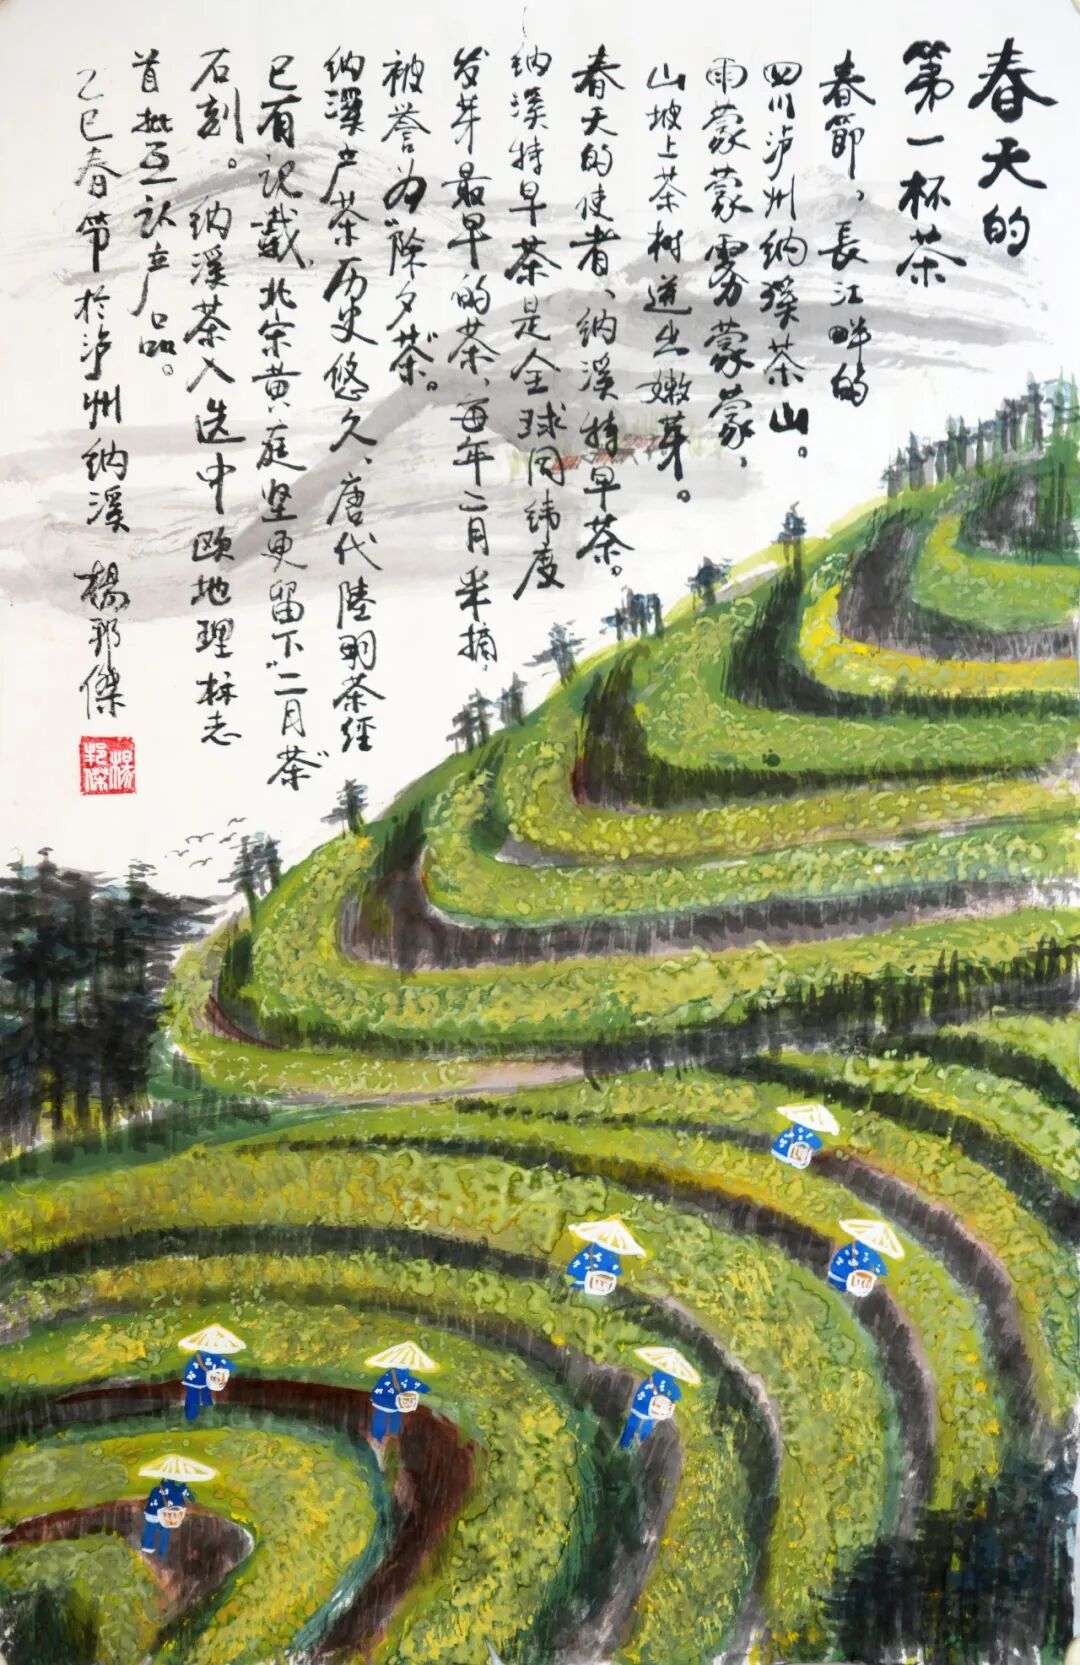 春天的
第一杯茶
春節，長江畔的
四川泸州纳溪茶山。
雨蒙蒙雾蒙蒙，
山坡上茶树道出嫩芽。
春天的使者、纳溪特早茶。
纳溪特早茶是全球同纬度
发芽最早的茶、每年二月采摘。
被誉为“除夕茶”。
纳溪产茶历史悠久、唐代陸羽茶經
已有记載，北宋黄庭坚更留下“二月茶”
石刻。纳溪茶入选中欧地理标志
首批互认产品。
乙巳春节於泸州纳溪 楊邦傑
楊邦傑